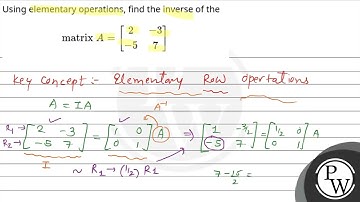 Using elementary operations, find the inverse of the
matrix A = [2 −3
−5 7]
Key Concept :- Elementary Row opertations
A = IA
A⁻¹
R₁→ [2 −3 = [1 0 A ⇒ [1 −3/2 = [1/2 0 A
R₂→ −5 7] 0 1] −5 7] 0 1]
I
~ R₁ → (1/2) R₁
7 − 15/2 =
PW